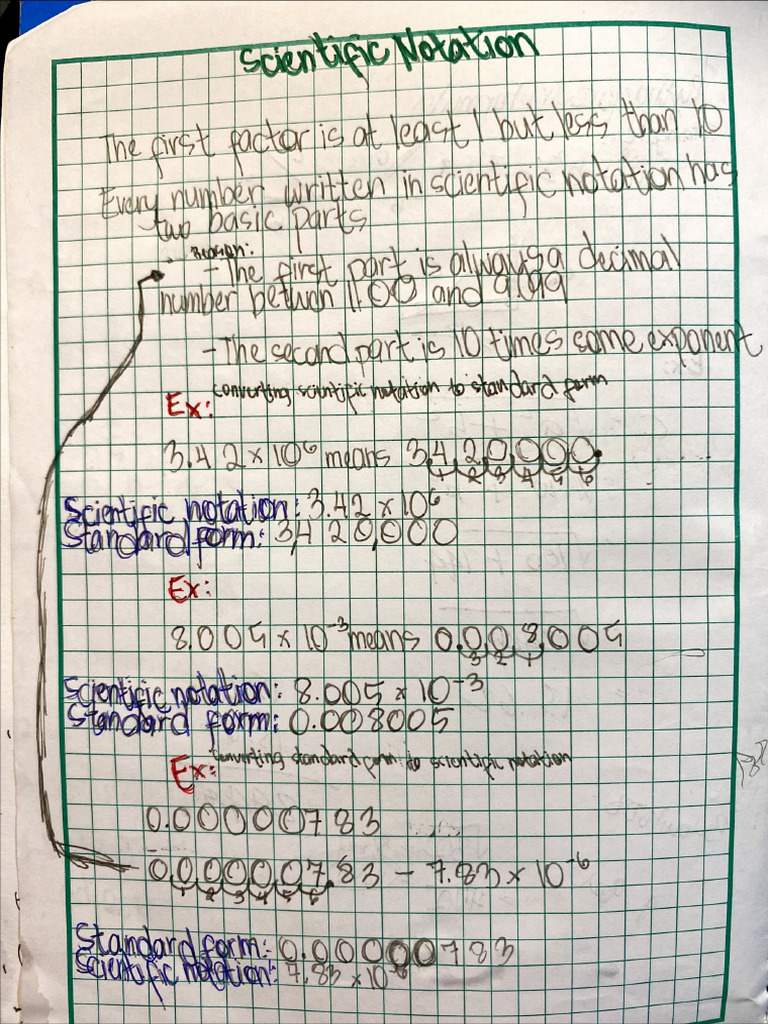 Scientific Notation
The first factor is at least 1 but less than 10
Every number written in scientific notation has
two basic parts
Reason:
- The first part is always a decimal
number betwen 1.00 and 9.99
- The second part is 10 times some exponent
Ex: converting scientific notation to standard form
3.42 × 10⁶ means 3,420,000.
1 2 3 4 5 6
Scientific notation: 3.42 × 10⁶
Standard form: 3,420,000
Ex:
8.005 × 10⁻³ means 0.008.005
3 2 1
Scientific notation: 8.005 × 10⁻³
Standard form: 0.008005
Ex: converting standard form to scientific notation
0.00000783
0.000007.83 – 7.83 × 10⁻⁶
1 2 3 4 5 6
Standard form: 0.00000783
Scientific notation: 7.83 × 10⁻⁶